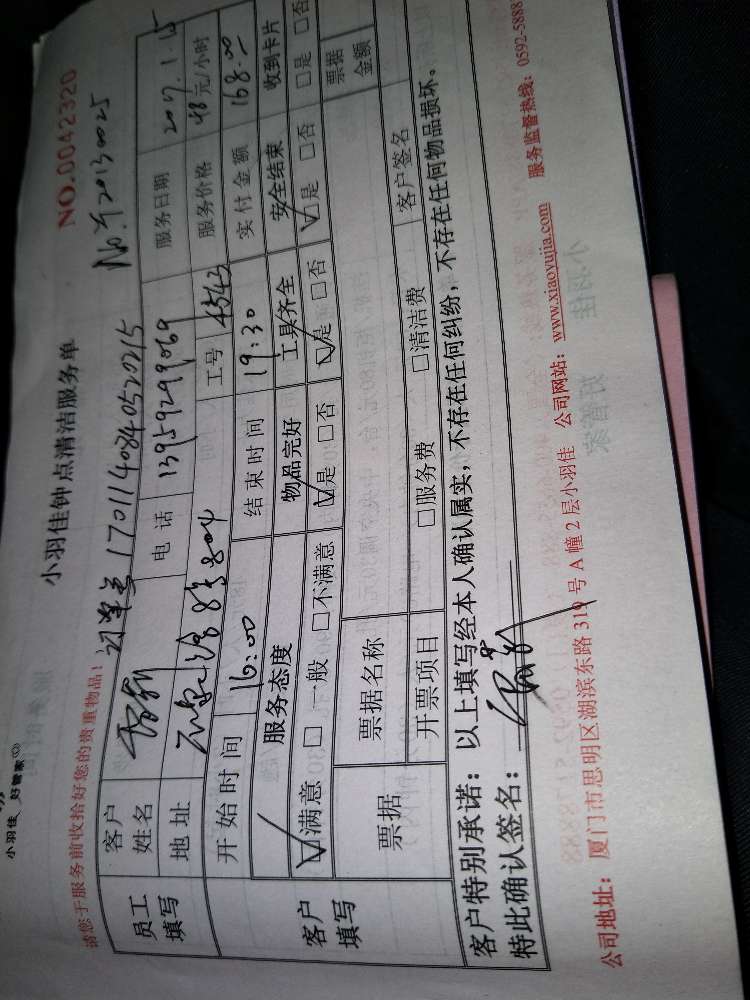 小羽佳 好管家
请您于服务前收拾好您的贵重物品！
小羽佳钟点清洁服务单
NO.0042320
订单号 1701140840520215
No:Y20130025
员工填写
客户姓名
电话 13959299069
服务日期 2017.1.15
地址 8号804
工号 4543
服务价格 48元/小时
客户填写
开始时间 16:00
结束时间 19:30
实付金额 168.00
服务态度 物品完好 工具齐全 安全结束 收到卡片
☑满意 □一般 □不满意 ☑是 □否 ☑是 □否 ☑是 □否 □是 □否
票据
票据名称
票据金额
开票项目 □服务费 □清洁费 客户签名
客户特别承诺：以上填写经本人确认属实，不存在任何纠纷，不存在任何物品损坏。
特此确认签名：
公司地址：厦门市思明区湖滨东路319号A幢2层小羽佳 公司网站：www.xiaoyujia.com 服务监督热线：0592-5888